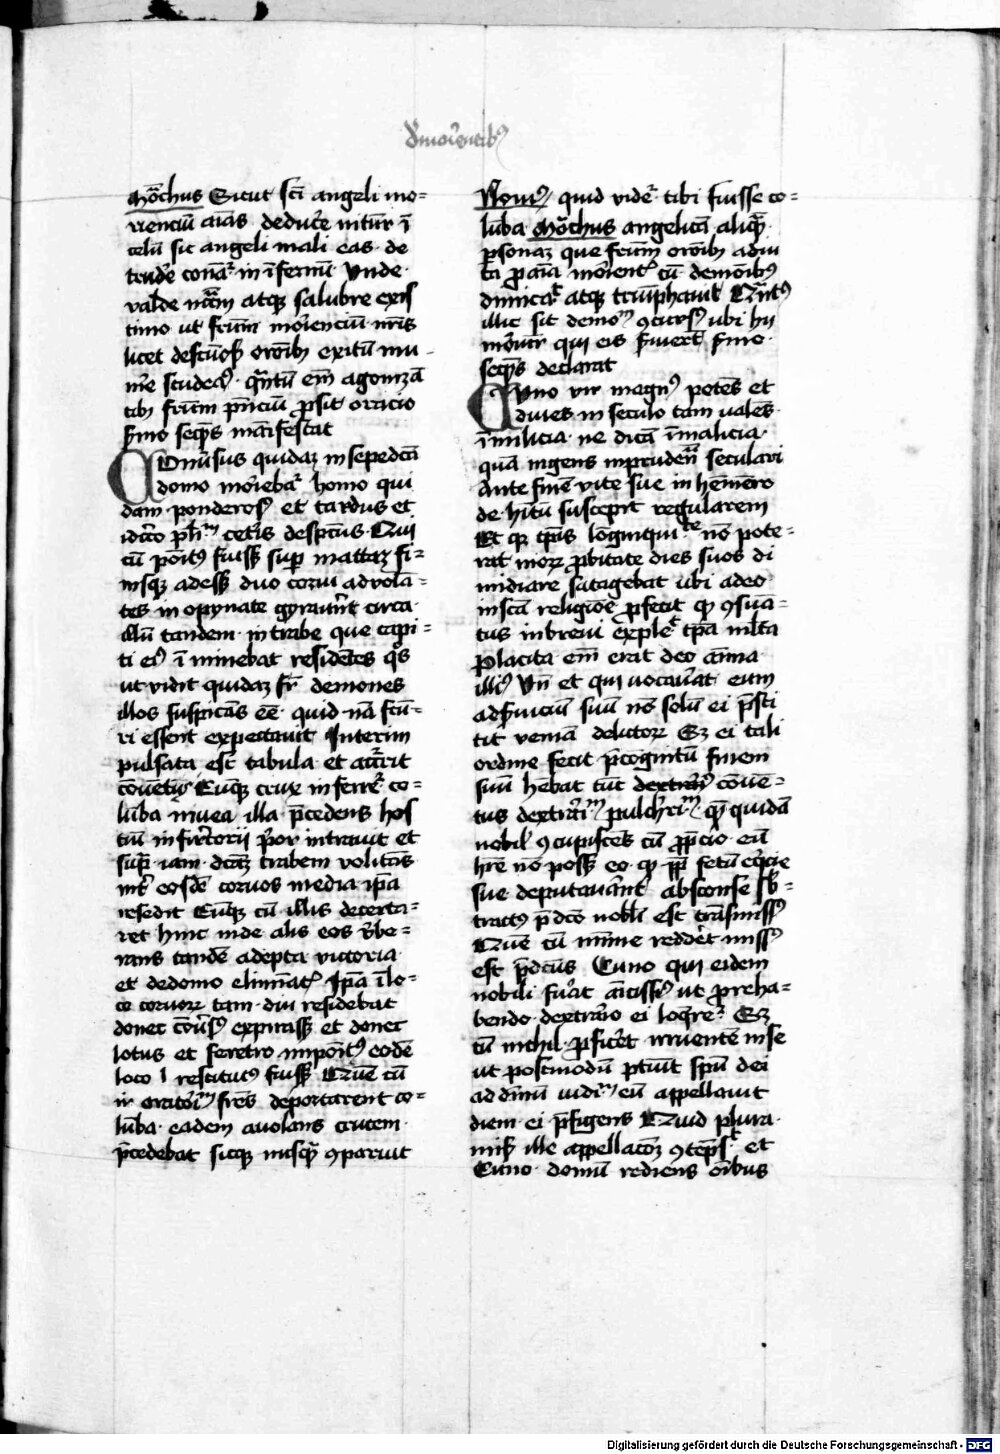 d' morientib9
Mo̅chus Sicut sci̅ angeli mo-
rienciu̅ ai̅as deduce̅ nitu̅r i̅
celu̅ sic angeli mali eas de
trude̅ cona̅r in infernu̅ Unde
valde atq; salubre exis
timo ut fru̅m morienciu̅ nr̅is
licet oro̅ib; exitu̅ mu
ni̅e studeam9 qua̅tu̅ em̅ agoniza̅
tib; fru̅m oracio
sermo seque̅s manifestat
Conu̅sus quidaz in sepedca̅
domo moriebar̅ homo qui
dam ponderos9 et tardus et
idci̅co ceteris despc̅us Qui
cu̅ poi̅t9 fuiss; sup̅ mattaz fi-
nisq; adess; duo corui advola-
tes in opynate gyraueru̅t circa
illu̅ tandem in trabe que capi-
ti ei9 i̅minebat reside̅tes q̅s
ut vidit quidaz fr̅ demones
illos suspica̅s ee̅ quid na̅ ftu̅-
ri essent expectauit Interim
pulsata est tabula et accu̅rit
co̅uet9 Cu̅q; crux inferre̅ co-
lu̅ba niuea illa p̅cedens hos
tiu̅ infir̅torii p̅or intrauit et
sup̅ iam dca̅z trabem volita̅s
int̅ eosde̅ coruos media ip̅a
resedit Cu̅q; cu̅ illis decerta-
ret hinc inde alis eos v̅be-
rans tande̅ adepta victoria
et de domo elimi̅at9 Ip̅a i̅ lo-
co coruor̅ tam diu residebat
donec expirass; et donec
lotus et feretro impoi̅t9 eode̅
loco restitut9 fuiss; Que̅ cu̅
in fr̅es deportarent co-
lu̅ba eadem auolans crucem
p̅cedebat sicq; nusq̅ 9paruit
Noui9 quid vide̅ tibi fuisse co-
lu̅ba Mo̅chus angelica̅ aliq̅
p̅sonaz que fru̅m oro̅ib; adiu
ta p̅ ai̅a morient9 cu̅ demo̅ib9
dimicar̅ atq; triu̅phauit Qua̅t9
illic sit demo̅ 9curs9 ubi hii
moriu̅tr qui eis s̅uieru̅t s̅mo
seque̅s declarat
Cuno vir magn9 pote̅s et
diues in seculo tam uale̅s
i̅ milicia ne dica̅ i̅ malicia
qua̅ ingens in prude̅ti̅a seculari
Ante fine̅ vite sue in heme̅ro
de hi̅tu̅ suscepit regularem
Et q; tp̅is lo̅ginqui te̅ no̅ pote-
rat morz p̅bitate dies suos di
midiare satagebat ubi adeo
in sca̅ religio̅e p̅fecit q; 9sua̅-
tus in breui exple̅t tp̅a ml̅ta
Placita em̅ erat deo a̅ima
illi9 Vn̅ et qui uocau̅at eum
ad s̅uiciu̅ suu̅ no̅ solu̅ ei p̅sti
tit venia̅ delictorz Sz ei tali
ordine fecit p̅cognitu̅ finem
suu̅ he̅bat tu̅c dextrari9 co̅ue̅-
tus dextrariu̅ pulcherimu̅ que̅ quida̅
nobil̅ 9cupisce̅s cu̅ p̅cio eu̅
hr̅e no̅ poss; eo q;
sue deputaueru̅t absconse sb̅-
tract9 p̅dco̅ nobl̅i est tra̅smiss9
Que̅ cu̅ mi̅ime redde̅t miss9
est p̅dc̅us Cuno qui eidem
nobili fu̅at amiciss9 ut p̅ reha-
bendo dextrario ei loq̅ret̅ Sz
cu̅ nichil p̅ficer̅t irruente̅ in se
ut postmodu̅ ptuit spu̅ dei
ad diuinu̅ iudiciu̅ eu̅ appellauit
diem ei p̅figens Quid plura
mis̅ ille appellaco̅z 9te̅ps̅t et
Cuno domu̅ rediens o̅ibus
Digitalisierung gefördert durch die Deutsche Forschungsgemeinschaft - DFG